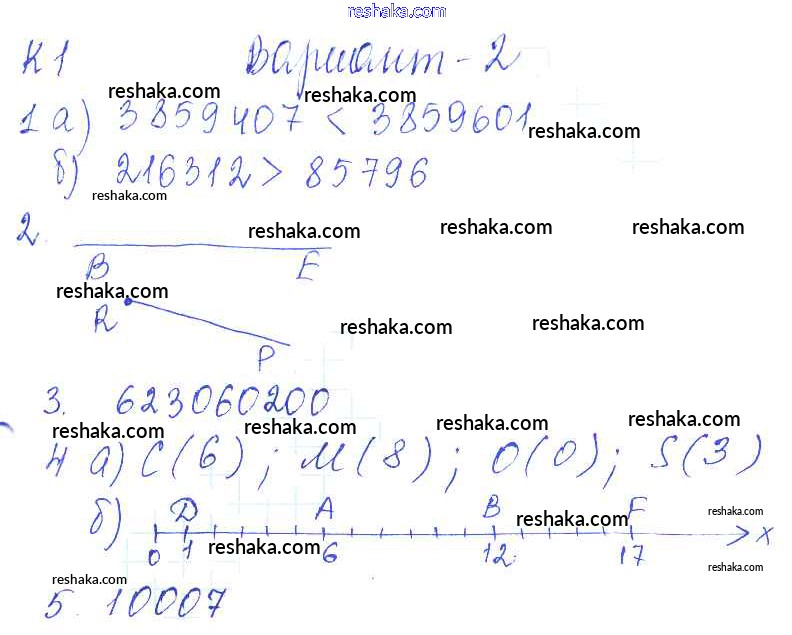 reshaka.com
К1 Вариант-2
reshaka.com reshaka.com
1 а) 3859407 < 3859601
reshaka.com
б) 216312 > 85796
reshaka.com
2. reshaka.com reshaka.com reshaka.com
B E
reshaka.com
R reshaka.com reshaka.com
P
3. 623060200
reshaka.com reshaka.com reshaka.com reshaka.com
4 а) C(6); M(8); O(0); S(3)
б) D A B F reshaka.com
reshaka.com
0 1 6 12 17 x
reshaka.com reshaka.com
reshaka.com
5. 10007